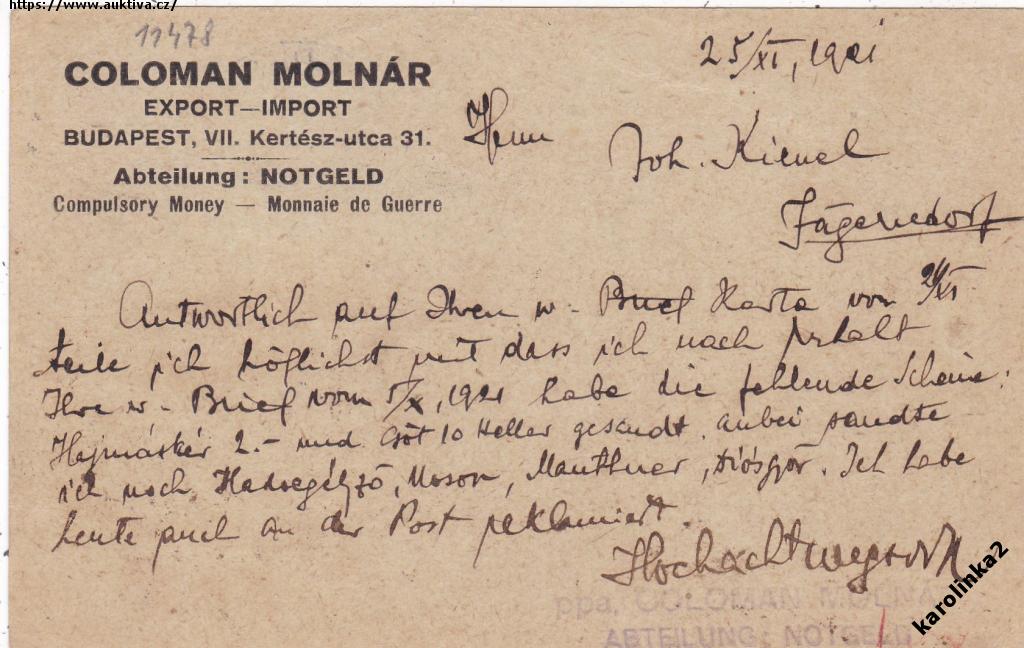 https://www.auktiva.cz/
11478
COLOMAN MOLNÁR
EXPORT—IMPORT
BUDAPEST, VII. Kertész-utca 31.
Abteilung: NOTGELD
Compulsory Money — Monnaie de Guerre
25/XI, 1921
Herrn
Joh. Kienel
Jägerndorf
Antwortlich auf Ihren w. Brief Karte von /XI
teile ich höflichst mit dass ich nach Erhalt
Ihre w. Brief vom 5/X, 1921 habe die fehlende Scheine:
Hajmáskér 2.- und Gőt 10 Heller gesandt. anbei sandte
ich noch Hadsegélyző, Moson, Mauthner, Diósgőr. Ich habe
heute auch an der Post reklamiert.
Hochachtungsvoll
ppa. COLOMAN MOLNÁ
ABTEILUNG: NOTGELD
karolinka2